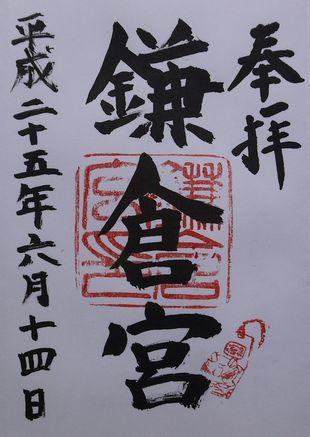 奉拝
鎌倉宮
平成二十五年六月十四日